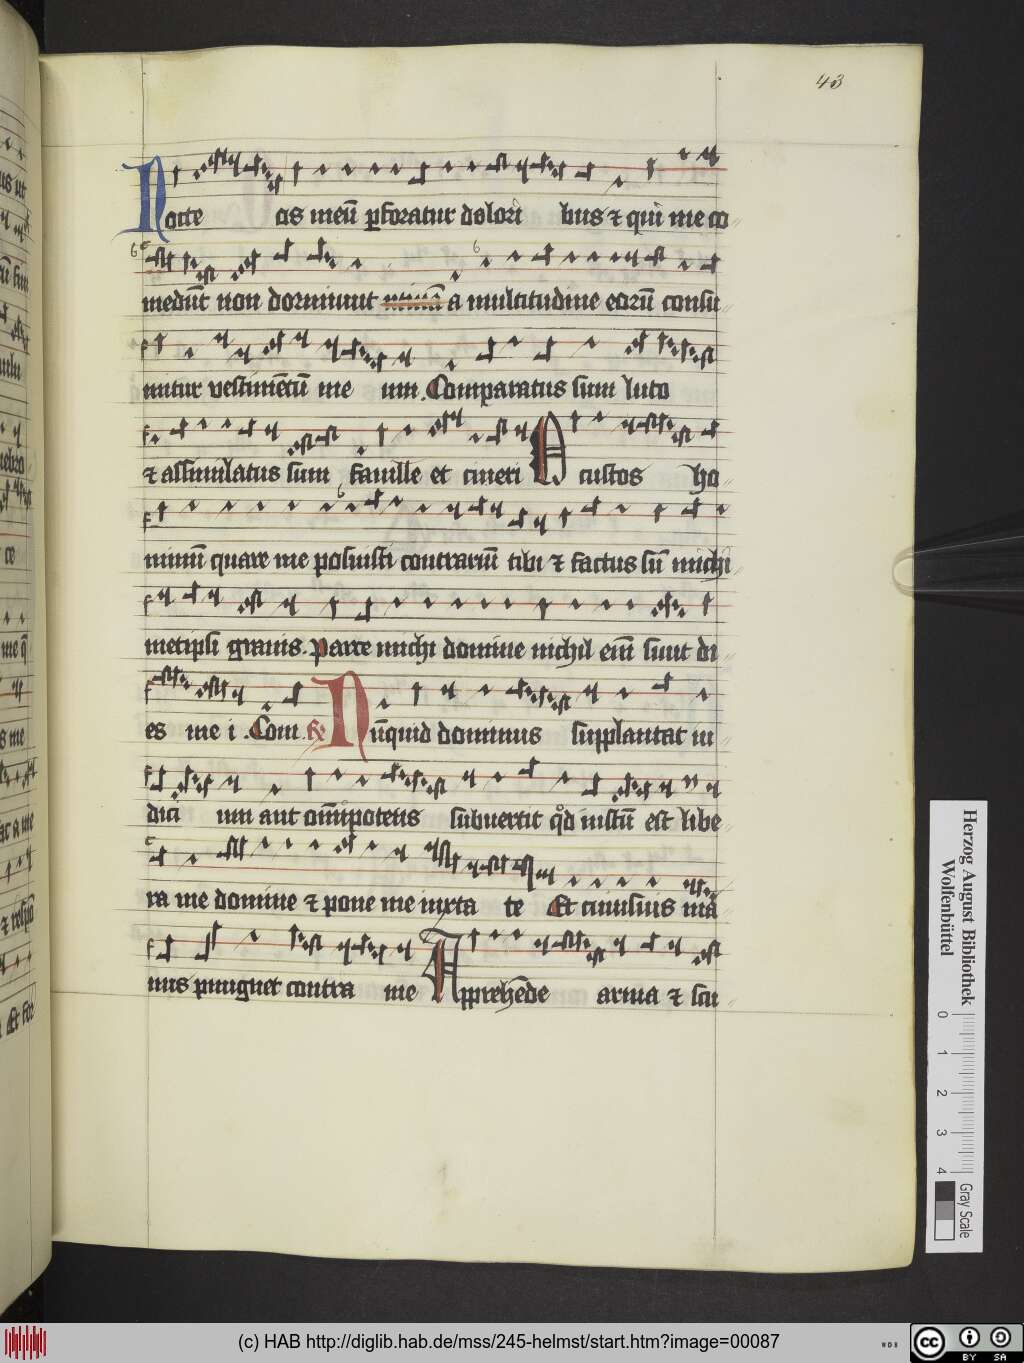 43
Nocte os meū ꝑforatur dolori bus ⁊ qui me co
medūt non dormiunt a multitudine eorū consu
mitur vestimētū me um. Comparatus sum luto
⁊ assimilatus sum fauille et cineri O custos ho
minū quare me posuisti contrariū tibi ⁊ factus sū michi
metipsi grauis. Parce michi domine nichil eīm sunt di
es me i. Com. Nūquid dominus supplantat iu
dici um aut omīpotens subuertit qđ iustū est libe
ra me domine ⁊ pone me iuxta te Et cuiusuis ma
nus pungnet contra me Apprehēde arma ⁊ scu
Herzog August Bibliothek
Wolfenbüttel
0 1 2 3 4
Gray Scale
(c) HAB http://diglib.hab.de/mss/245-helmst/start.htm?image=00087
WDB
cc BY SA